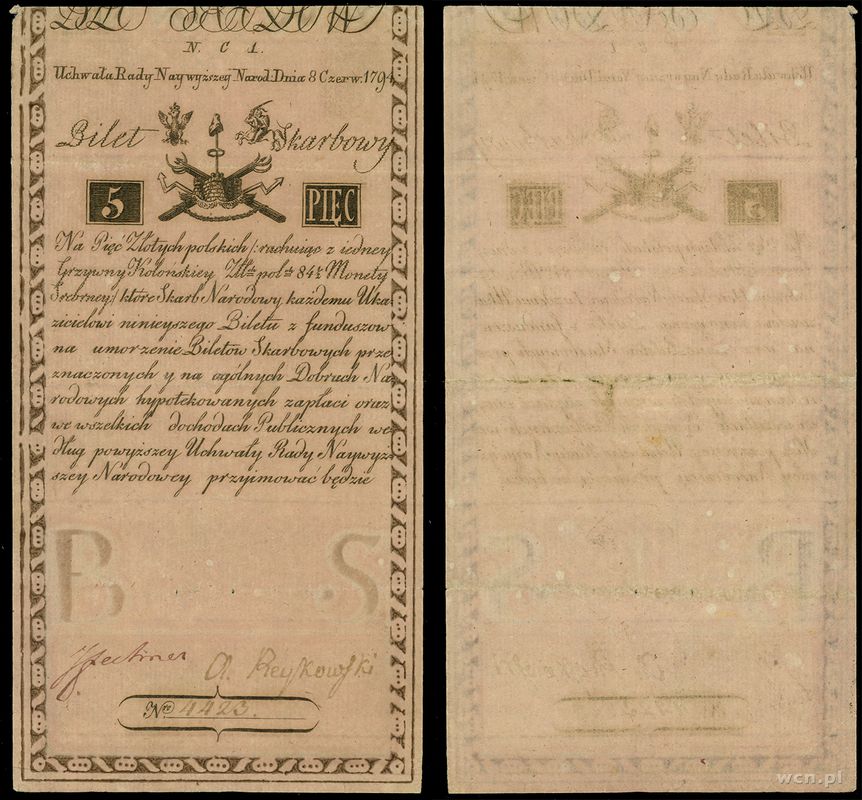 N. C 1.
Uchwała Rady Naywyższey Narod: Dnia 8 Czerw. 1794
Bilet Skarbowy
5 PIĘC
Na Pięć Złotych polskich /: rachuiąc z iedney
Grzywny Kolońskiey Złł. pol. 84¼ Monety
Srebrney:/ które Skarb Narodowy każdemu Uka
zicielowi ninieyszego Biletu z funduszow
na umorzenie Biletów Skarbowych prze
znaczonych y na ogólnych Dobrach Na
rodowych hypotekowanych zapłaci oraz
we wszelkich dochodach Publicznych we
dług powyższey Uchwały Rady Naywyż
szey Narodowey przyimować będzie
A. Reykowski
Nro 4423.
wcn.pl